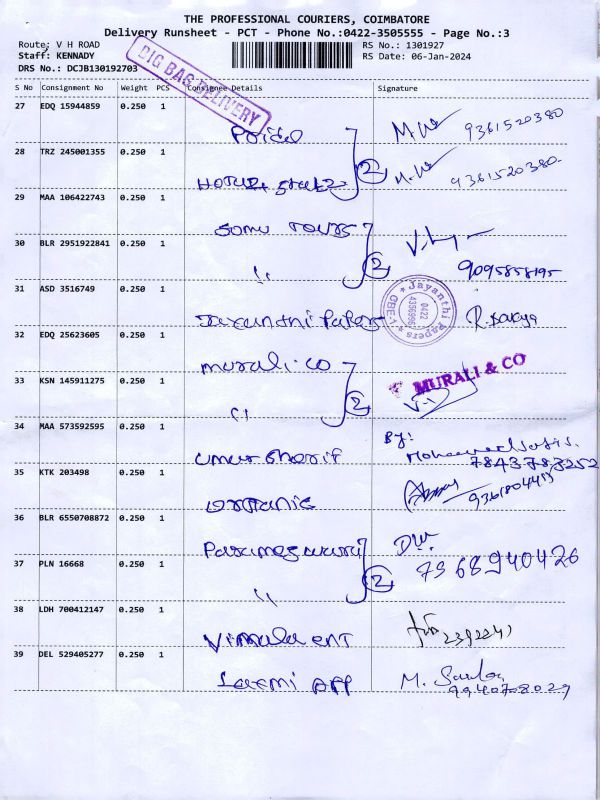 THE PROFESSIONAL COURIERS, COIMBATORE
Delivery Runsheet - PCT - Phone No.:0422-3505555 - Page No.:3
Route: V H ROAD RS No.: 1301927
Staff: KENNADY RS Date: 06-Jan-2024
DRS No.: DCJB130192703
BIG BAG DELIVERY
S No Consignment No Weight PCS Consignee Details Signature
27 EDQ 15944859 0.250 1
9361520380
28 TRZ 245001355 0.250 1
9361520380
29 MAA 106422743 0.250 1
Somu Tours
30 BLR 2951922841 0.250 1
" 2 9095858195
31 ASD 3516749 0.250 1
Jayanthi Papers
0422 4356996
CBE-1
32 EDQ 25623605 0.250 1
murali.co
33 KSN 145911275 0.250 1
" 2 MURALI & CO
34 MAA 573592595 0.250 1
By:
umur Sherif 7843783252
35 KTK 203498 0.250 1
36 BLR 6550708872 0.250 1
Parameswari
37 PLN 16668 0.250 1
" 2 7968940426
38 LDH 700412147 0.250 1
Vimala ENT 2392241
39 DEL 529405277 0.250 1
Laxmi APP M.